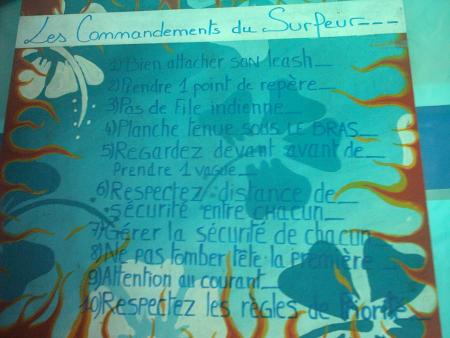 Les Commandements du Surfeur---
1) Bien attacher SON leash__
2) Prendre 1 point de repère__
3) Pas de File indienne__
4) Planche tenue sous LE BRAS__
5) Regardez devant avant de__
Prendre 1 vague__
6) Respectez distance de__
sécurité entre chacun__
7) Gérer la sécurité de chacun
8) Ne pas tomber tête la première__
9) Attention au courant__
10) Respectez les règles de Priorité__